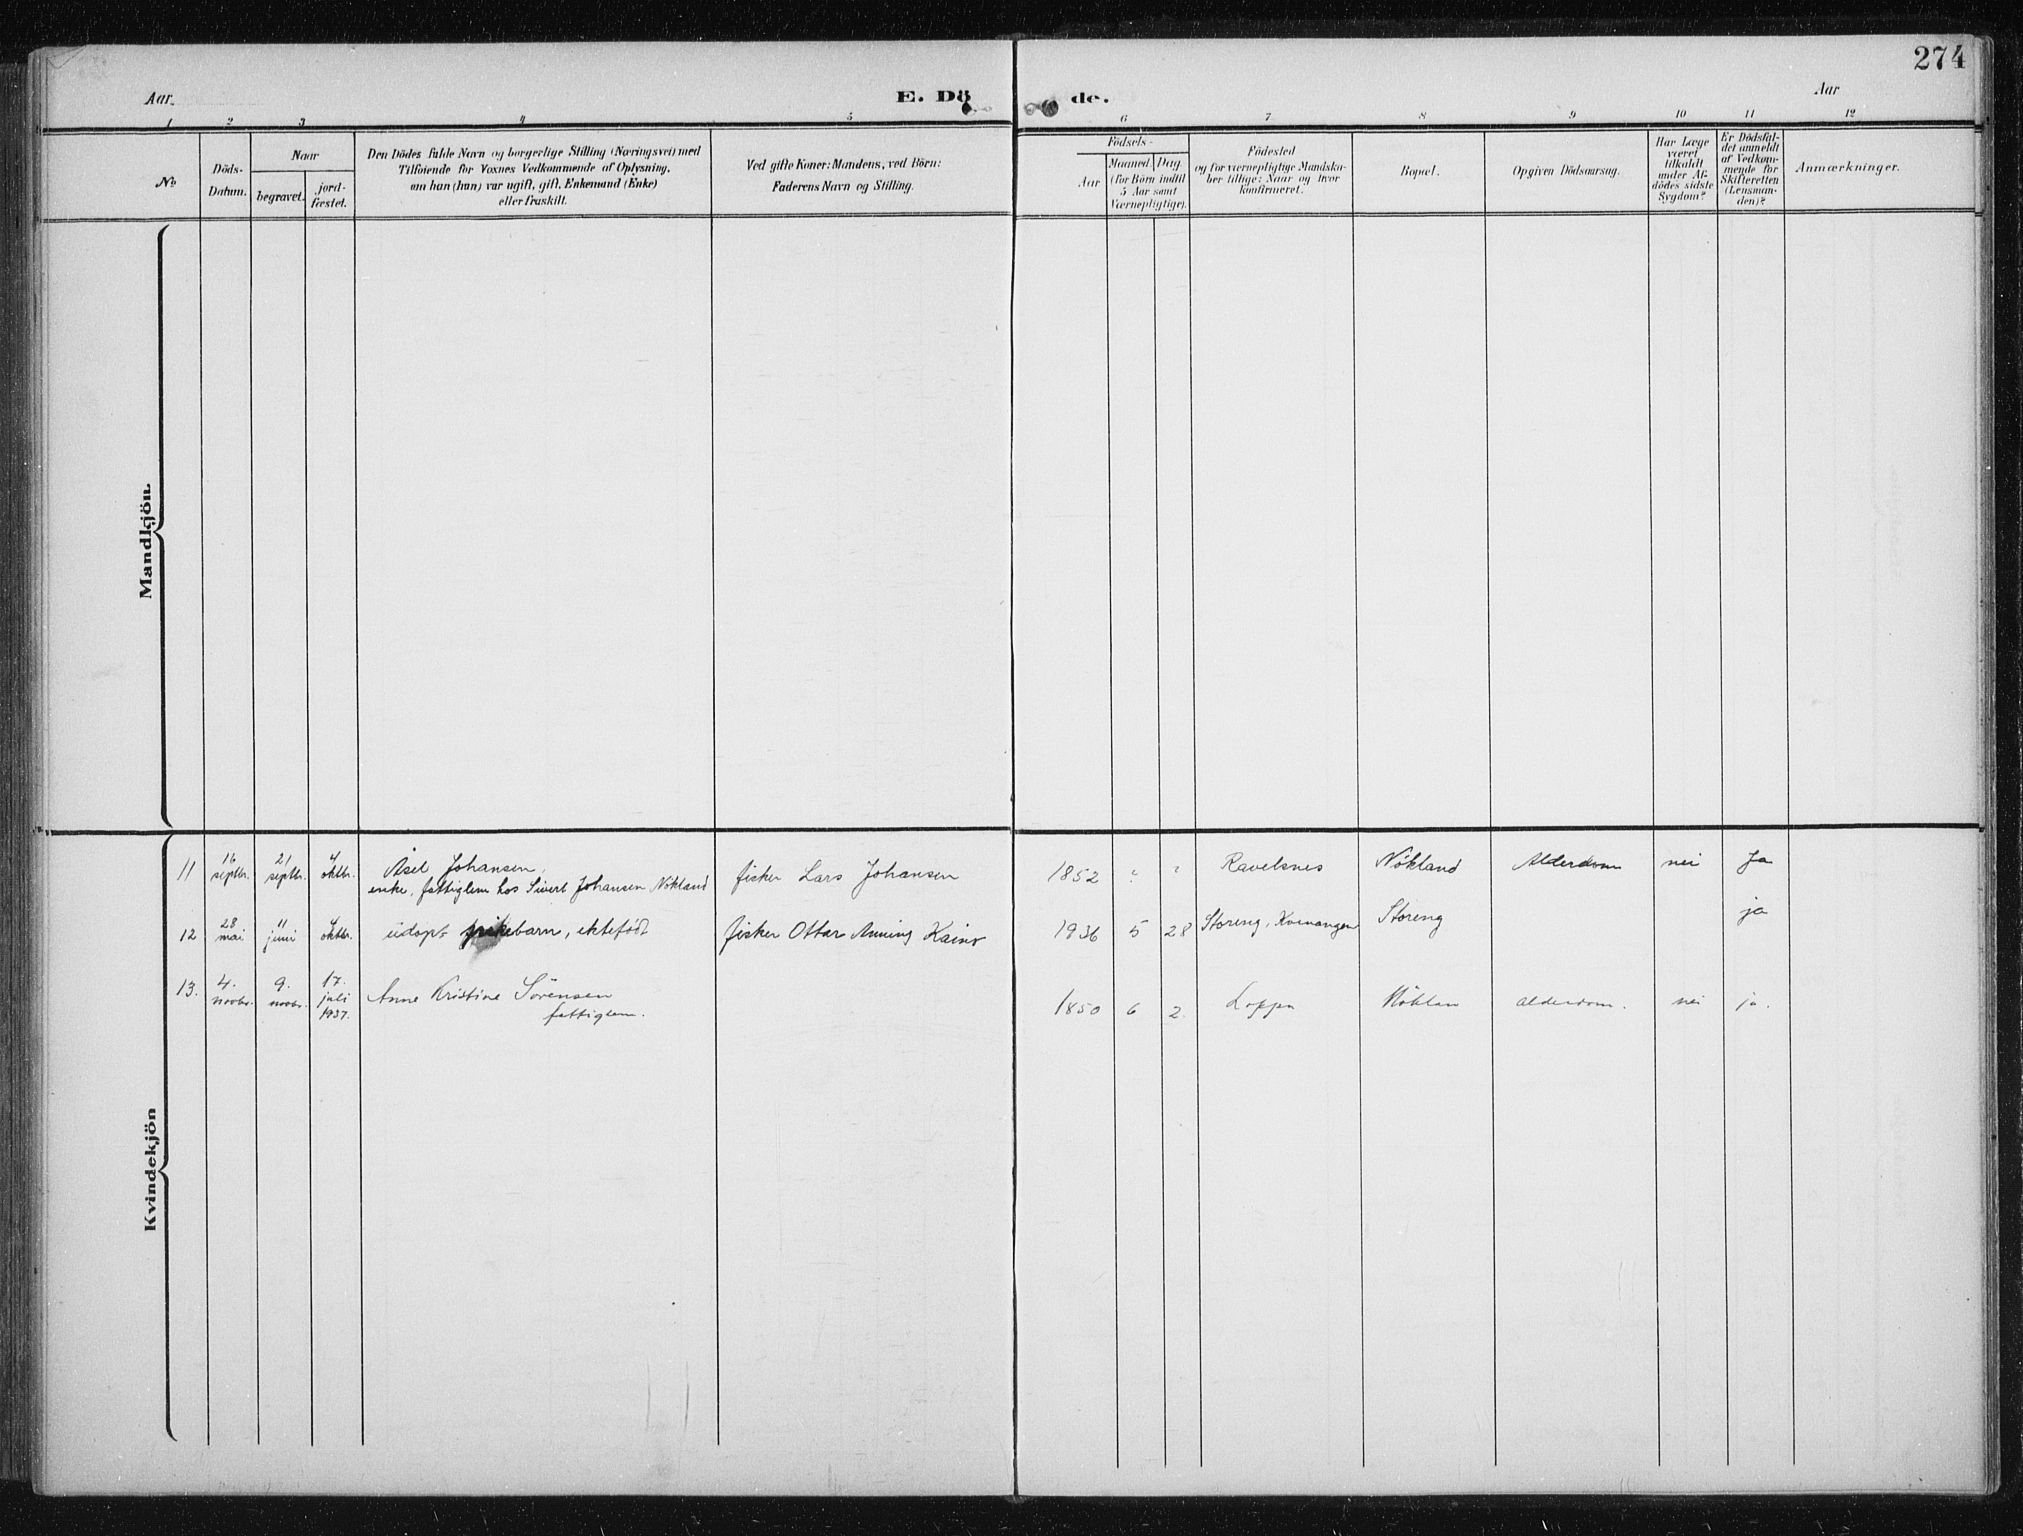 274
Aar
E. Dö
de.
Aar
1 2 3 4 5 6 7 8 9 10 11 12
No
Döds-
Datum.
Naar
begravet.
jord-
fæstet.
Den Dödes fulde Navn og borgerlige Stilling (Næringsvei) med
Tilföiende for Voxnes Vedkommende af Oplysning,
om han (hun) var ugift, gift, Enkemand (Enke)
eller fraskilt.
Ved gifte Koner: Mandens, ved Börn:
Faderens Navn og Stilling.
Födsels-
Aar
Maaned. Dag
(for Börn indtil
5 Aar samt
Værnepligtige).
Födested
og for værnepligtige Mandska-
ber tillige: Naar og hvor
konfirmeret.
Bopæl.
Opgiven Dödsaarsag.
Har Læge
været
tilkaldt
under Af-
dödes sidste
Sygdom?
Er Dödsfal-
det anmeldt
af Vedkom-
mende for
Skifteretten
(Lensman-
den)?
Anmærkninger.
Mandkjön.
Kvindekjön
11 16 septbr. 21 septbr. 4 oktbr. Åsel Johansen, fisker Lars Johansen 1852 ? ? Ravelsnes Nökland Alderdom nei Ja
enke, fattiglem hos Sivert Johansen Nökland
12 28 mai 11 juni 4 oktbr. udöpt pikebarn, ektefödt fisker Ottar Anning Kaino 1936 5 28 Storeng, Kvænangen Storeng ja
13. 4. novbr. 9. novbr. 17. juli 1937. Anne Kristine Sörensen 1850 6 2. Loppa Nöklan alderdom. nei ja.
fattiglem.